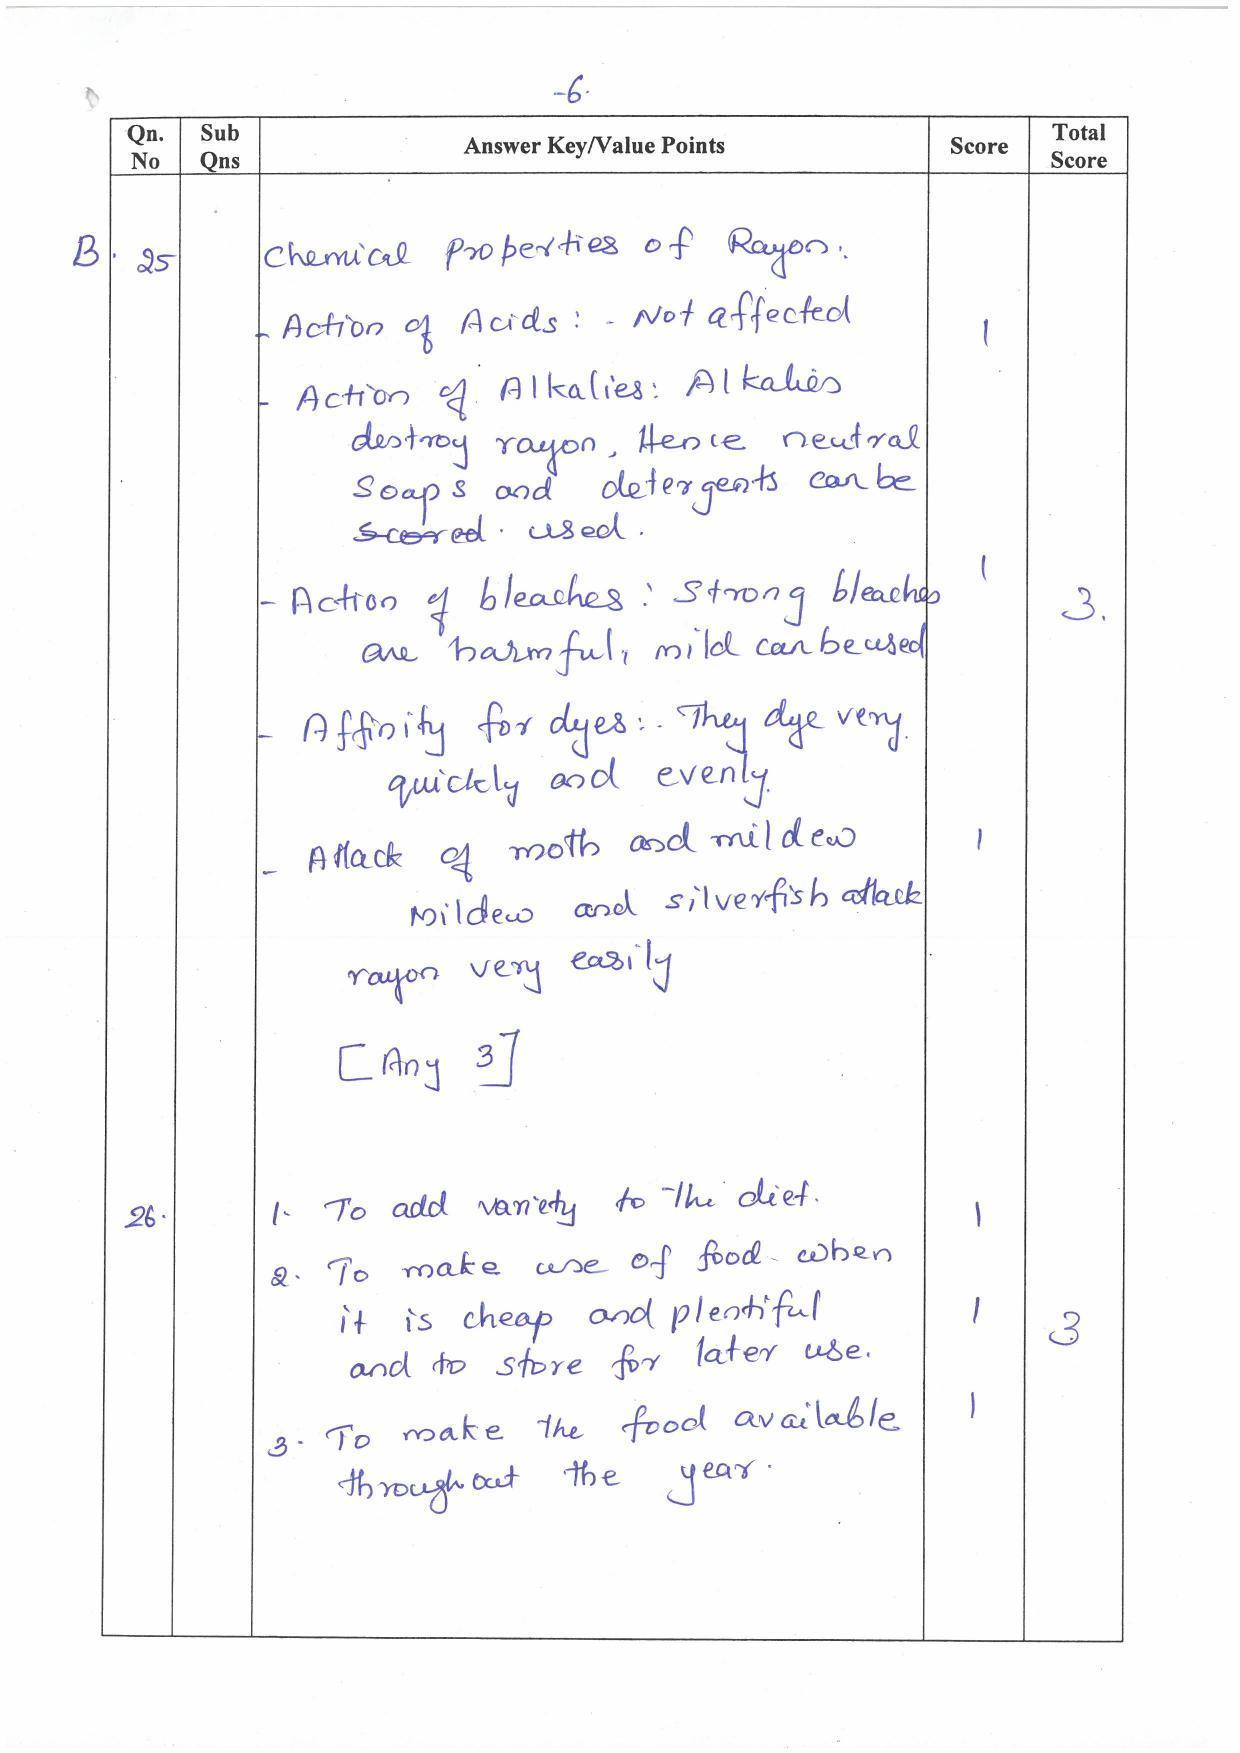 -6.
Qn. No
Sub Qns
Answer Key/Value Points
Score
Total Score
B. 25
Chemical Properties of Rayon:
- Action of Acids: - Not affected
1
- Action of Alkalies: Alkalies
destroy rayon, Hence neutral
Soaps and detergents can be
scored. used.
1
- Action of bleaches: Strong bleaches
are harmful, mild can be used
3.
- Affinity for dyes:- They dye very
quickly and evenly.
- Attack of moth and mildew
1
Mildew and silverfish attack
rayon very easily
[Any 3]
26.
1. To add variety to the diet.
1
2. To make use of food when
it is cheap and plentiful
1
3
and to store for later use.
3. To make the food available
1
throughout the year.